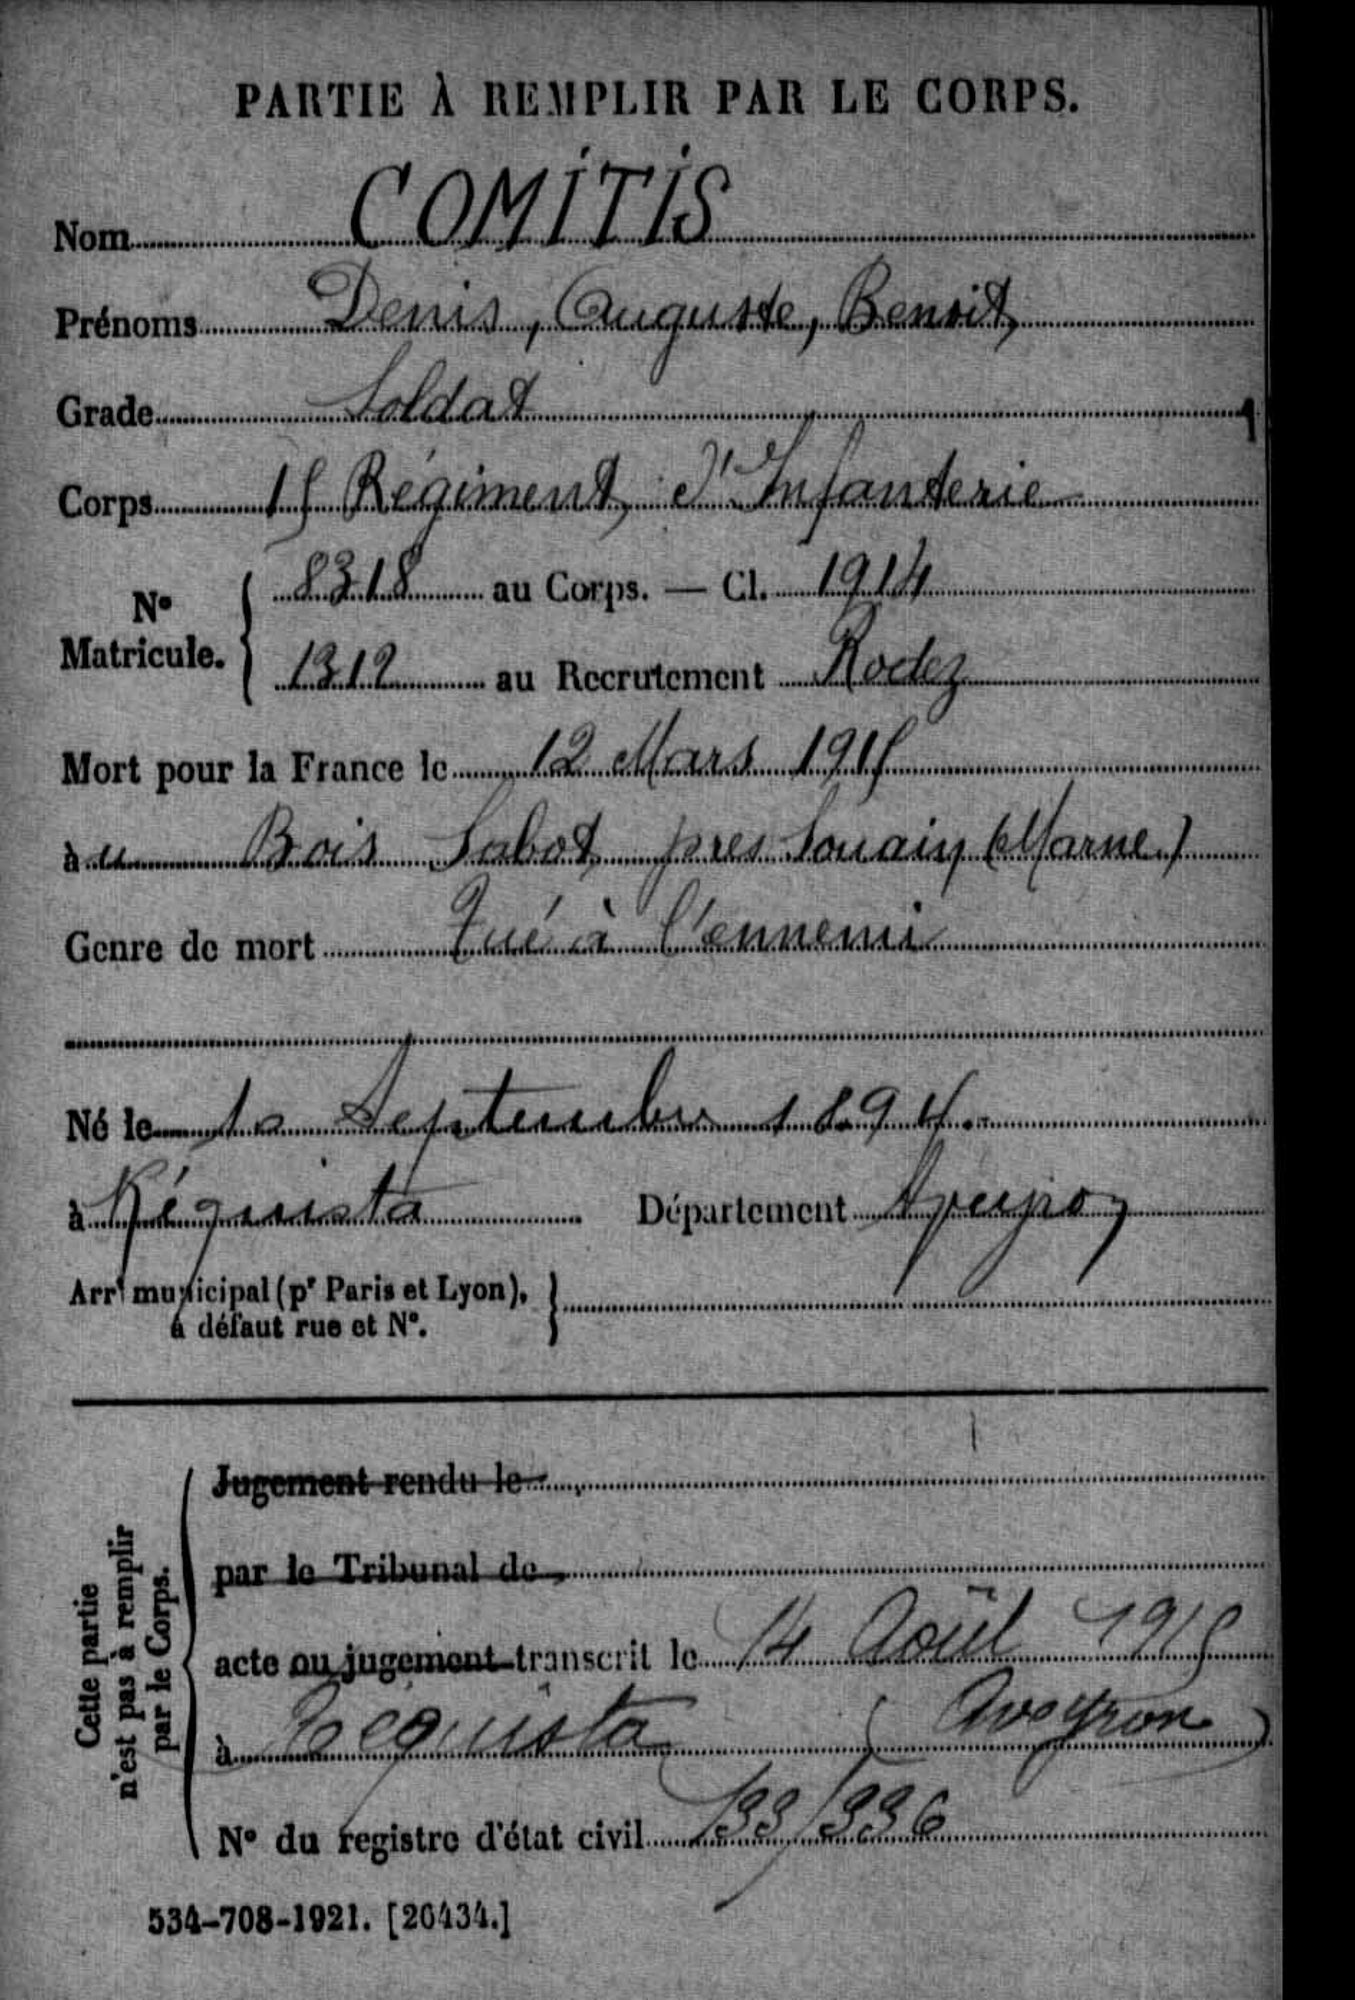 PARTIE À REMPLIR PAR LE CORPS.
Nom COMITIS
Prénoms Denis, Auguste, Benoit
Grade Soldat
1
Corps 15 Régiment d'Infanterie
N° Matricule. 8318 au Corps. — Cl. 1914
1312 au Recrutement Rodez
Mort pour la France le 12 Mars 1915
àu Bois Sabot pres Souain (Marne)
Genre de mort Tué à l'ennemi
Né le 10 Septembre 1894.
à Réquista Département Aveyron
Arrt municipal (pr Paris et Lyon),
à défaut rue et N°.
Cette partie
n'est pas à remplir
par le Corps.
Jugement rendu le
par le Tribunal de
acte ou jugement transcrit le 14 Août 1915
à Réquista (Aveyron)
N° du registre d'état civil 133/336
534-708-1921. [20434.]